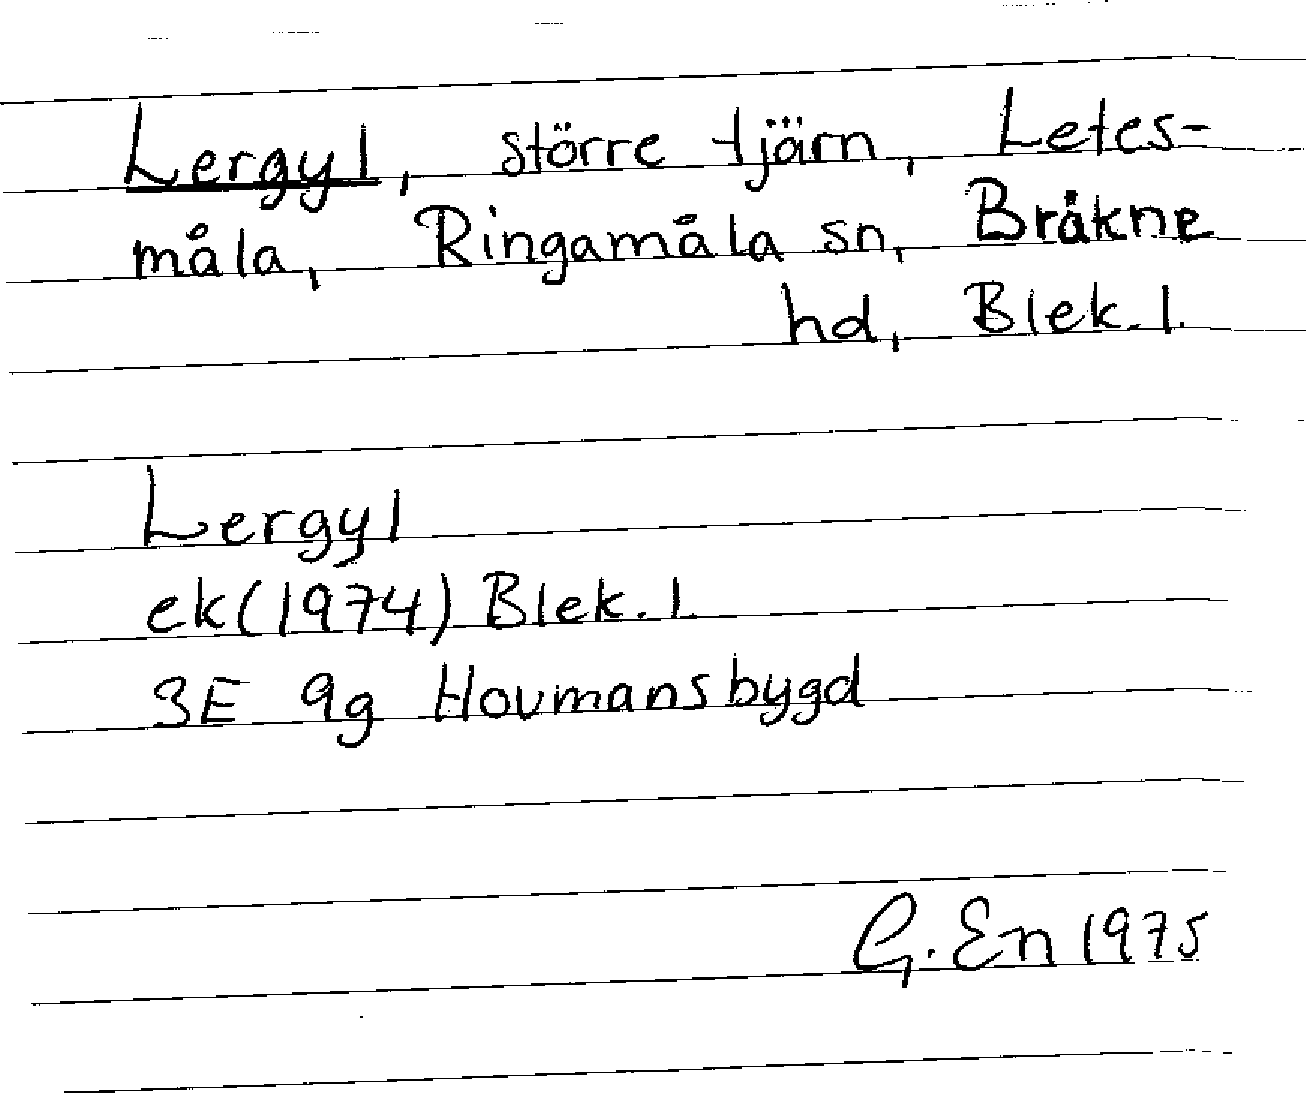 Lergyl, större tjärn, Letes-
måla, Ringamåla sn, Bräkne
hd, Blek. l.
Lergyl
ek(1974) Blek. l
3E 9g Hovmansbygd
G. En 1975